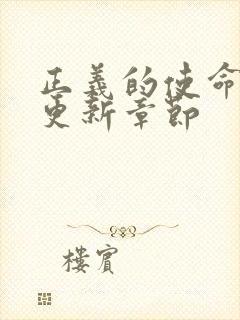 正義的使命
更新章節
樓賓